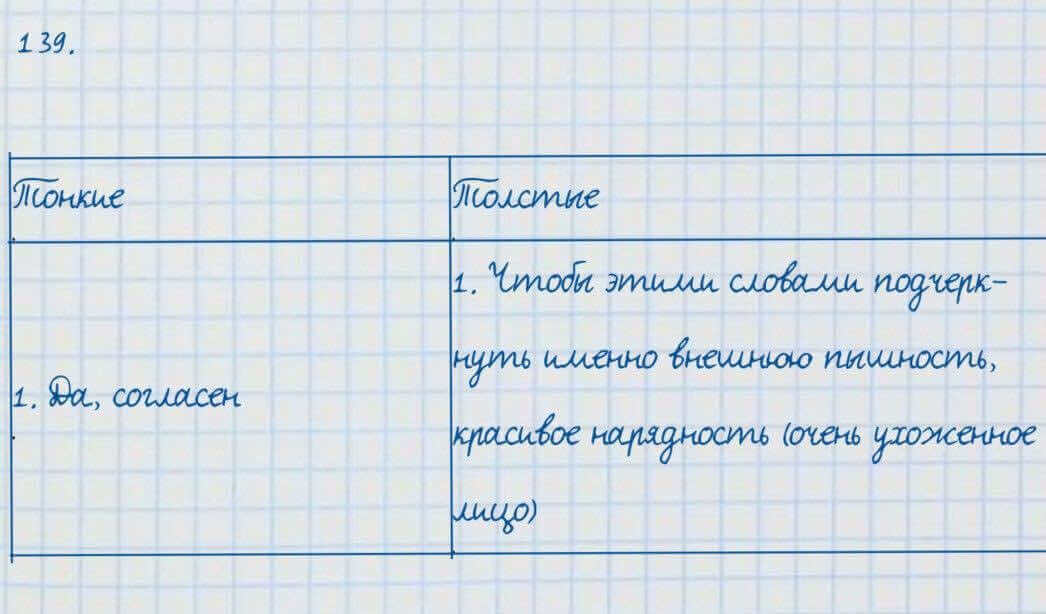 139.
Тонкие
Толстые
1. Да, согласен
1. Чтобы этими словами подчерк-
нуть именно внешнюю пышность,
красивое нарядность (очень ухоженное
лицо)